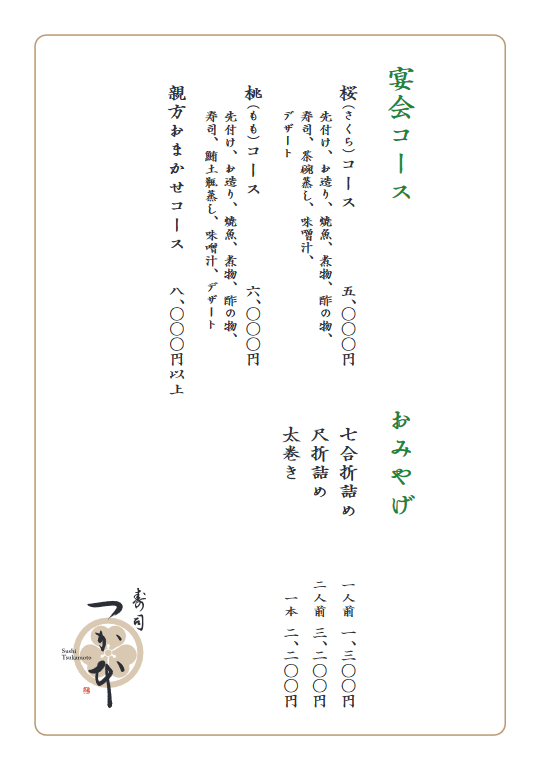 宴会コース
桜（さくら）コース　五、〇〇〇円
先付け、お造り、焼魚、煮物、酢の物、
寿司、茶碗蒸し、味噌汁、
デザート
桃（もも）コース　六、〇〇〇円
先付け、お造り、焼魚、煮物、酢の物、
寿司、鮪土瓶蒸し、味噌汁、デザート
親方おまかせコース　八、〇〇〇円以上
おみやげ
七合折詰め　一人前　一、三〇〇円
尺折詰め　二人前　三、二〇〇円
太巻き　一本　二、二〇〇円
寿司
つか本
Sushi
Tsukamoto